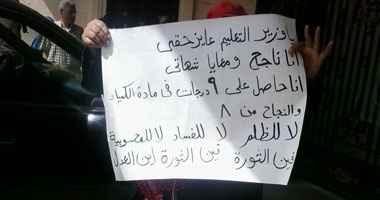 ياوزير التعليم عايز حقى
أنا ناجح ومعايا شهاتى
انا حاصل على ٩ درجات فى مادة الكمياء
والنجاح من ٨
لا للظلم لا للفساد لا للمحسوبية
فين الثورة فين الثورة اين العدل